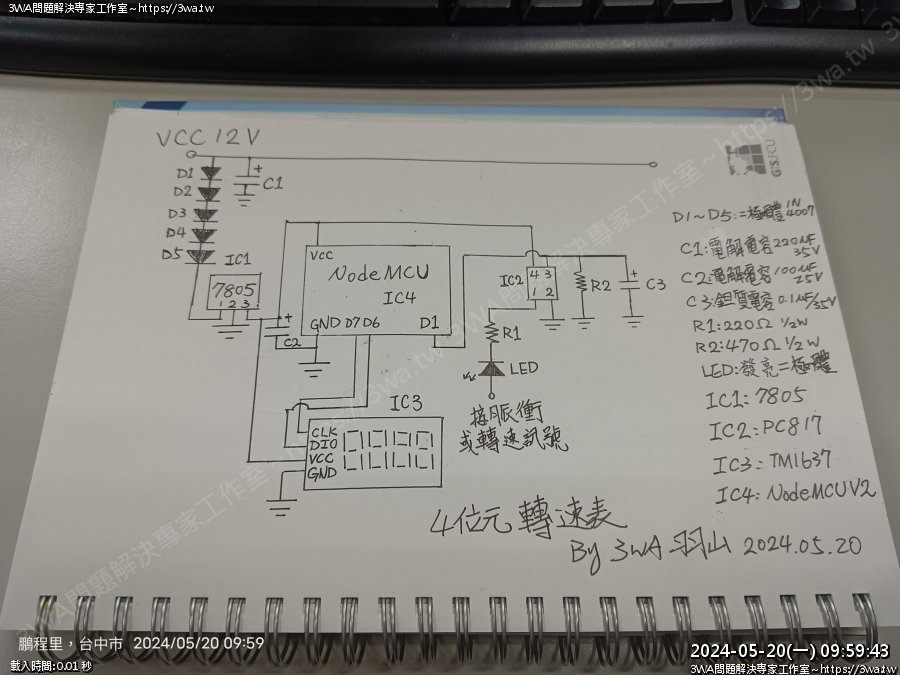 3WA問題解決專家工作室~https://3wa.tw
3WA問題解決專家工作室~https://3wa.tw
GIS.FCU
VCC 12V
D1
D2
D3
D4
D5
C1
IC1
7805
1 2 3
C2
VCC
NodeMCU
IC4
GND D7 D6 D1
IC2
4 3
1 2
R1
R2
C3
LED
接脈衝
或轉速訊號
IC3
CLK
DIO
VCC
GND
D1~D5:二極體 1N4007
C1:電解電容 220uF 35V
C2:電解電容 100uF 25V
C3:鉭質電容 0.1uF/35V
R1:220Ω 1/2W
R2:470Ω 1/2W
LED:發亮二極體
IC1:7805
IC2:PC817
IC3:TM1637
IC4:NodeMCU V2
4位元 轉速表
By 3WA 羽山 2024.05.20
鵬程里,台中市 2024/05/20 09:59
載入時間:0.01 秒
2024-05-20(一) 09:59:43
3WA問題解決專家工作室~https://3wa.tw